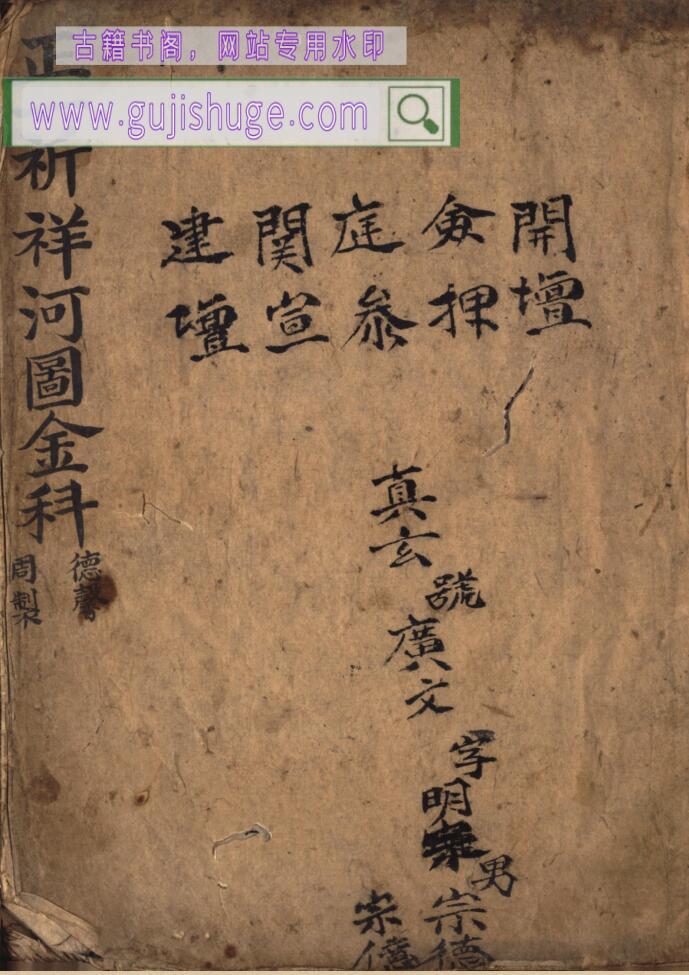 古籍书阁，网站专用水印
www.gujishuge.com
開壇
僉押
庭叅
関宣
建壇
真玄
號
廣文
字
明
男
宗德
宗億
正
祈祥河圖金科
德馨
周製